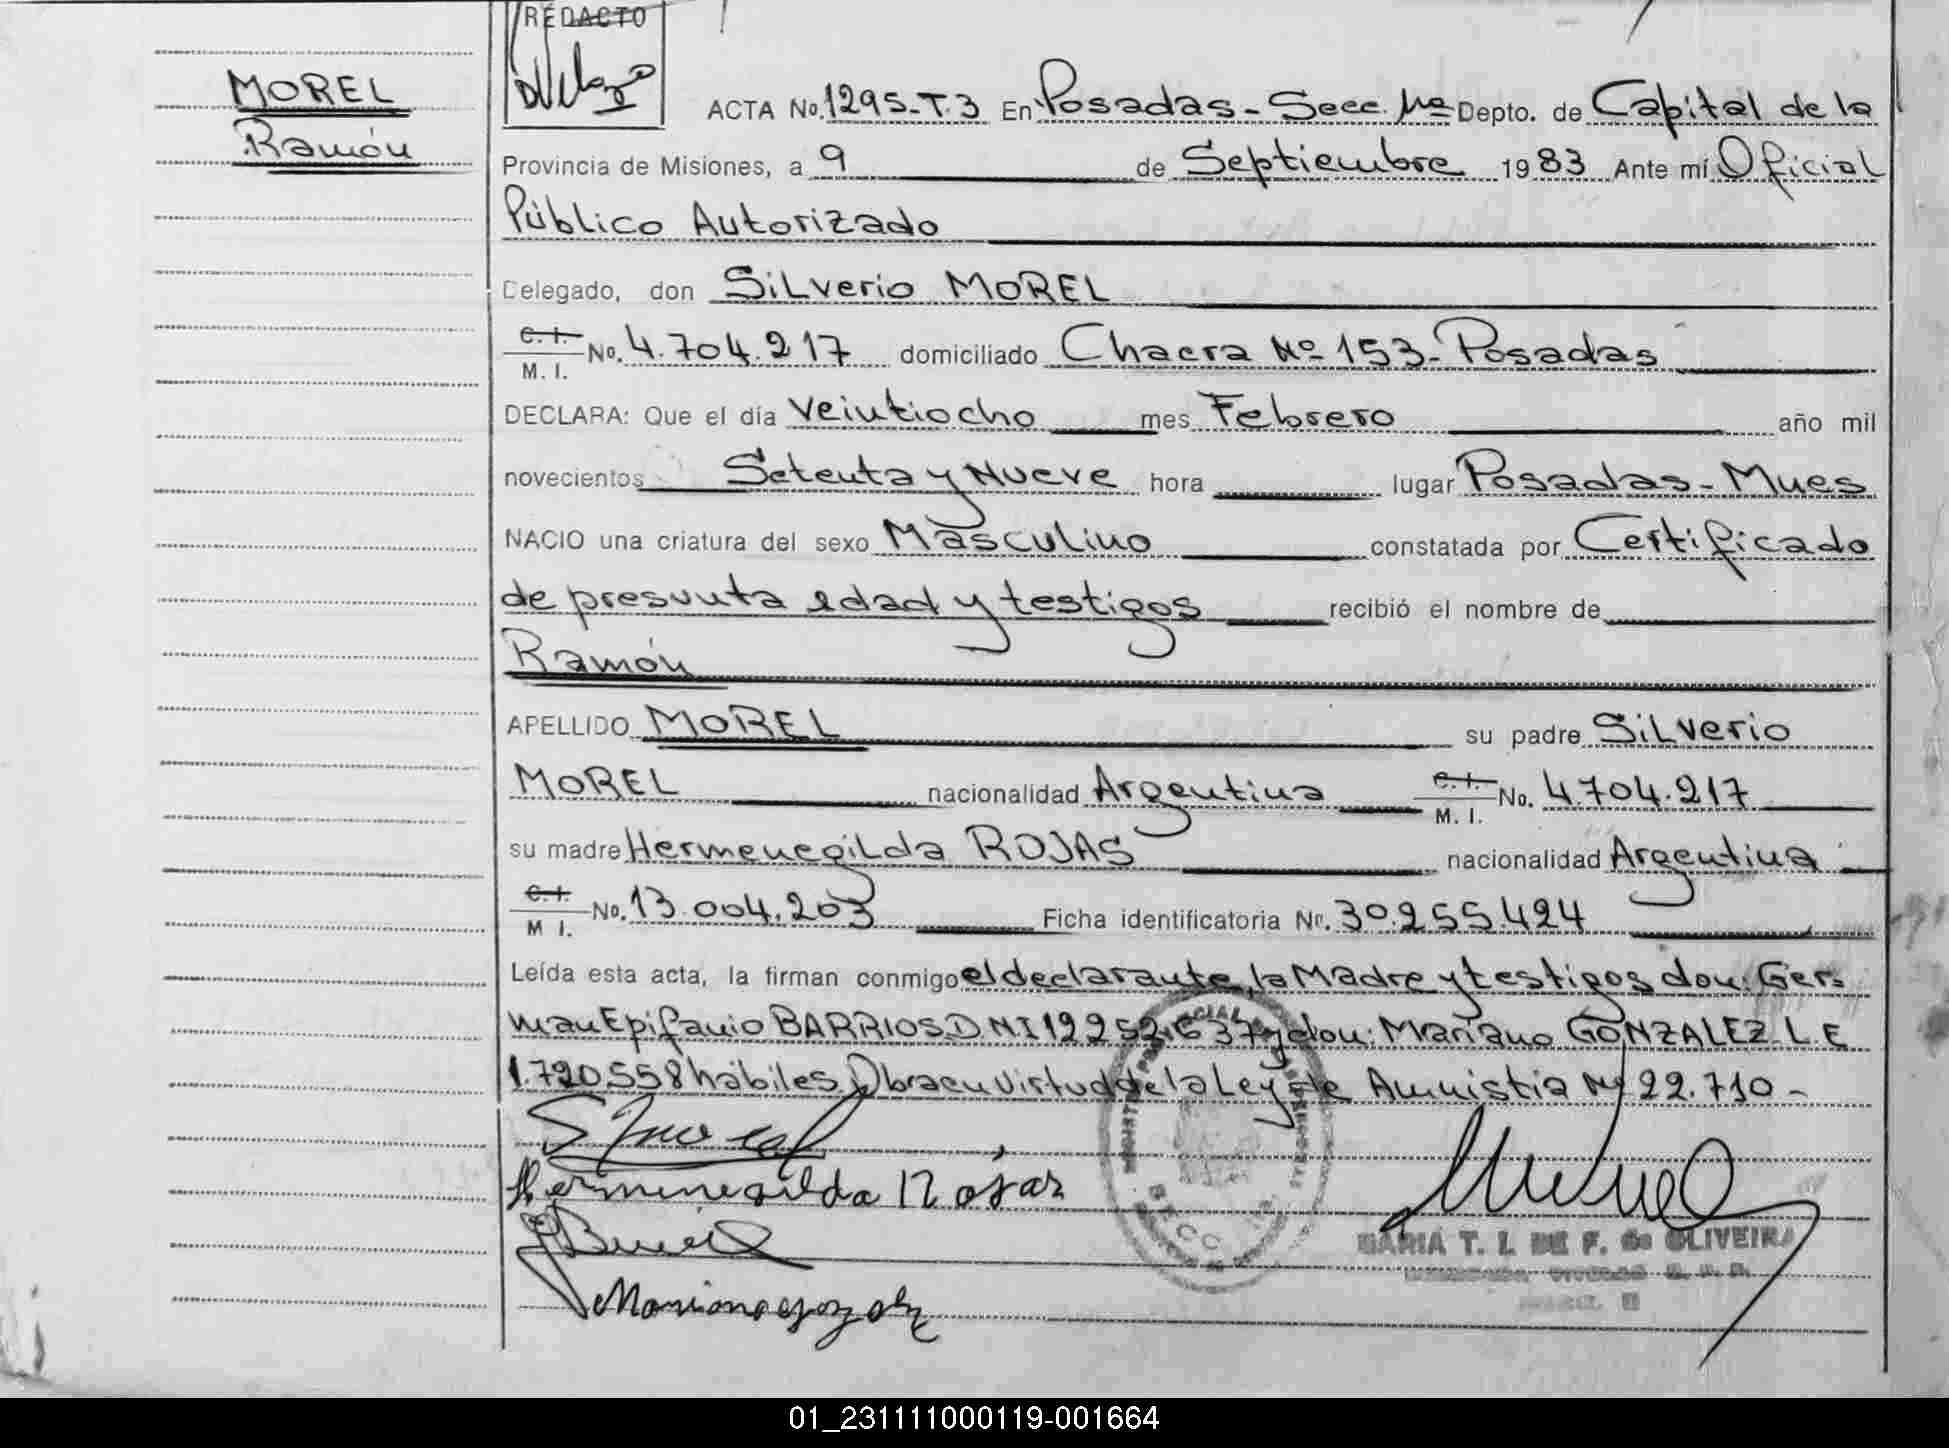 REDACTO
MOREL
Ramón
ACTA No. 1295-T.3 En Posadas - Secc. 1ra Depto. de Capital de la
Provincia de Misiones, a 9 de Septiembre 1983 Ante mí Oficial
Público Autorizado
Delegado, don Silverio MOREL
C. I.
M. I. No. 4.704.217 domiciliado Chacra Nº 153 - Posadas
DECLARA: Que el día veintiocho mes Febrero año mil
novecientos Setenta y Nueve hora lugar Posadas - Mnes
NACIO una criatura del sexo Masculino constatada por Certificado
de presunta edad y testigos recibió el nombre de
Ramón
APELLIDO MOREL su padre Silverio
MOREL nacionalidad Argentina C. I.
M. I. No. 4.704.217
su madre Hermenegilda ROJAS nacionalidad Argentina
C. I.
M I. No. 13.004.203 Ficha identificatoria Nº. 30.255.424
Leída esta acta, la firman conmigo el declarante, la Madre y testigos don: Ger-
man Epifanio BARRIOS D.N.I 12252.637 y don: Mariano GONZALEZ L.E
1.720.558 hábiles. Obra en virtud de la Ley de Amnistia Nº 22.710 -
Hermenegilda Rojas
Mariano gonzalez
MARIA T. I. DE F. de OLIVEIRA
01_231111000119-001664